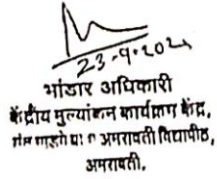 23-9-202
भांडार अधिकारी
केंद्रीय मुल्यांकन कार्यक्रम केंद्र,
अमरावती विद्यापीठ,
अमरावती.